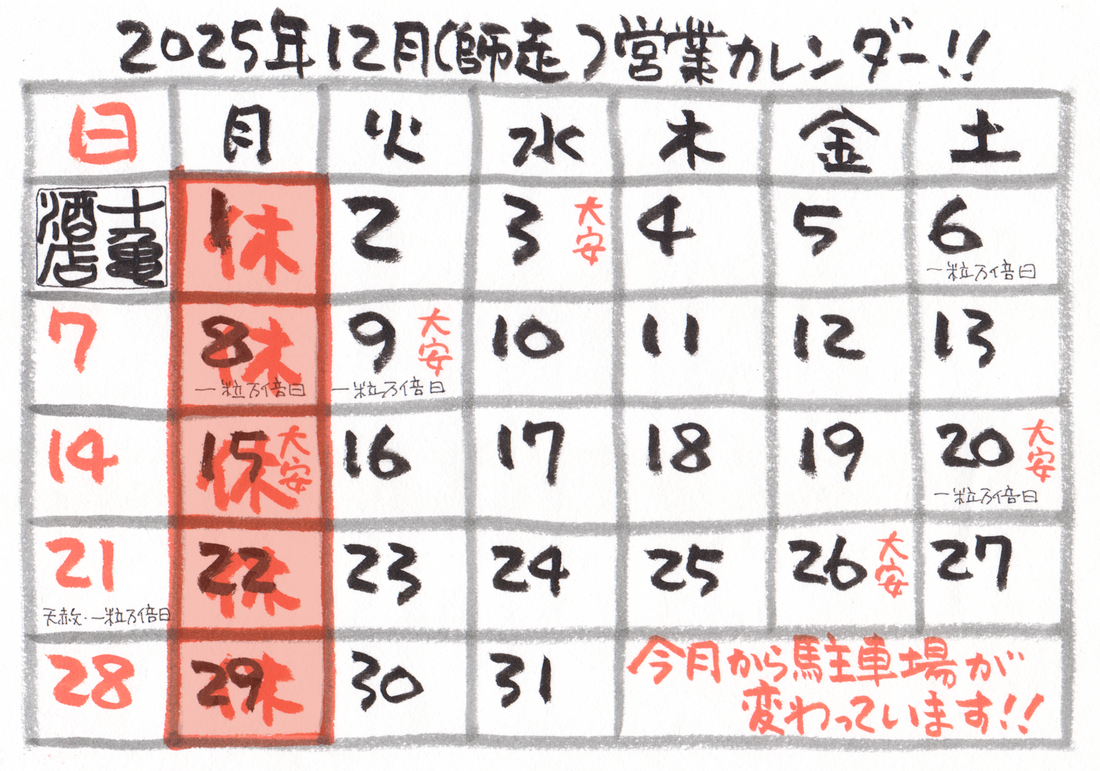 2025年12月(師走)営業カレンダー!!
日 月 火 水 木 金 土
十亀酒店
1 休
2
3 大安
4
5
6 一粒万倍日
7
8 休 一粒万倍日
9 大安 一粒万倍日
10
11
12
13
14
15 休 大安
16
17
18
19
20 大安 一粒万倍日
21 天赦・一粒万倍日
22 休
23
24
25
26 大安
27
28
29 休
30
31
今月から駐車場が
変わっています!!